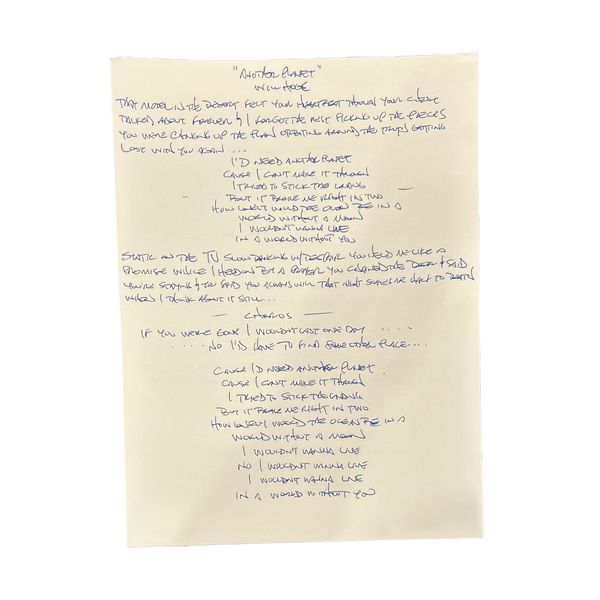 "ANOTHER PLANET"
WILL HOGE
THAT MOTEL IN THE DESERT FELT YOUR HEARTBEAT THROUGH YOUR CHEST
TALKED ABOUT FOREVER & I FORGOT THE REST PICKING UP THE PIECES
YOU WERE CHANGING UP THE PLAN ORBITING AROUND THE TRUTH GETTING
LOST WITH YOU AGAIN....
I'D NEED ANOTHER PLANET
CAUSE I CAN'T MAKE IT THROUGH
I TRIED TO STICK THE LANDING
BUT IT BROKE ME RIGHT IN TWO
HOW LONELY WOULD THE OCEAN BE IN A
WORLD WITHOUT A MOON
I WOULDN'T WANNA LIVE
IN A WORLD WITHOUT YOU
STATIC ON THE TV SLOW DANCING W/ DESPAIR YOU HELD ME LIKE A
PROMISE WHILE I HELD ON BY A PRAYER YOU CHANGED THE & SAID
YOU'RE STAYING & YOU SAID YOU ALWAYS WILL THAT NIGHT SCARES ME HALF TO DEATH
WHEN I THINK ABOUT IT STILL...
— CHORUS —
IF YOU WERE GONE I WOULDN'T LAST ONE DAY .....
.... NO I'D HAVE TO FIND SOME OTHER PLACE....
CAUSE I'D NEED ANOTHER PLANET
CAUSE I CAN'T MAKE IT THROUGH
I TRIED TO STICK THE LANDING
BUT IT BROKE ME RIGHT IN TWO
HOW LONELY WOULD THE OCEAN BE IN A
WORLD WITHOUT A MOON
I WOULDN'T WANNA LIVE
NO I WOULDN'T WANNA LIVE
I WOULDN'T WANNA LIVE
IN A WORLD WITHOUT YOU